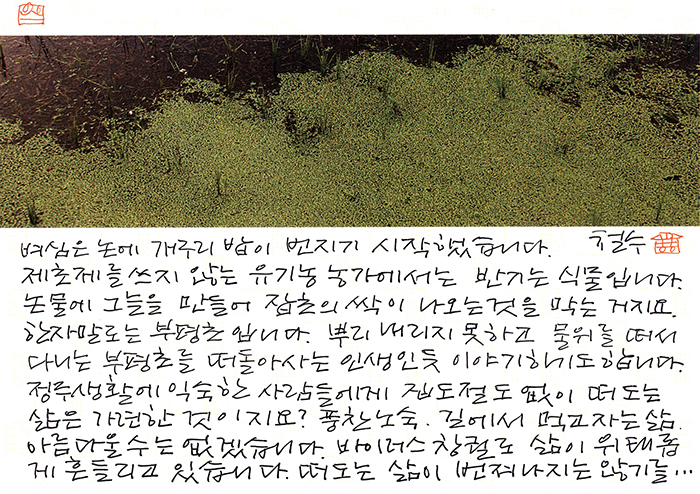 벼심은 논에 개구리 밥이 번지기 시작했습니다. 철수
제초제를 쓰지 않는 유기농 농가에서는 반기는 식물입니다.
논물에 그늘을 만들어 잡초의 싹이 나오는것을 막는 거지요.
한자말로는 부평초 입니다. 뿌리 내리지 못하고 물위를 떠서
다니는 부평초를 떠돌아사는 인생인듯 이야기하기도합니다.
정주생활에 익숙한 사람들에게 집도절도 없이 떠도는
삶은 가련한 것이지요? 풍찬노숙. 길에서 먹고자는삶.
아름다울수는 없겠습니다. 바이러스 창궐로 삶이 위태롭
게 흔들리고 있습니다. 떠도는 삶이 번져나지는 않기를…